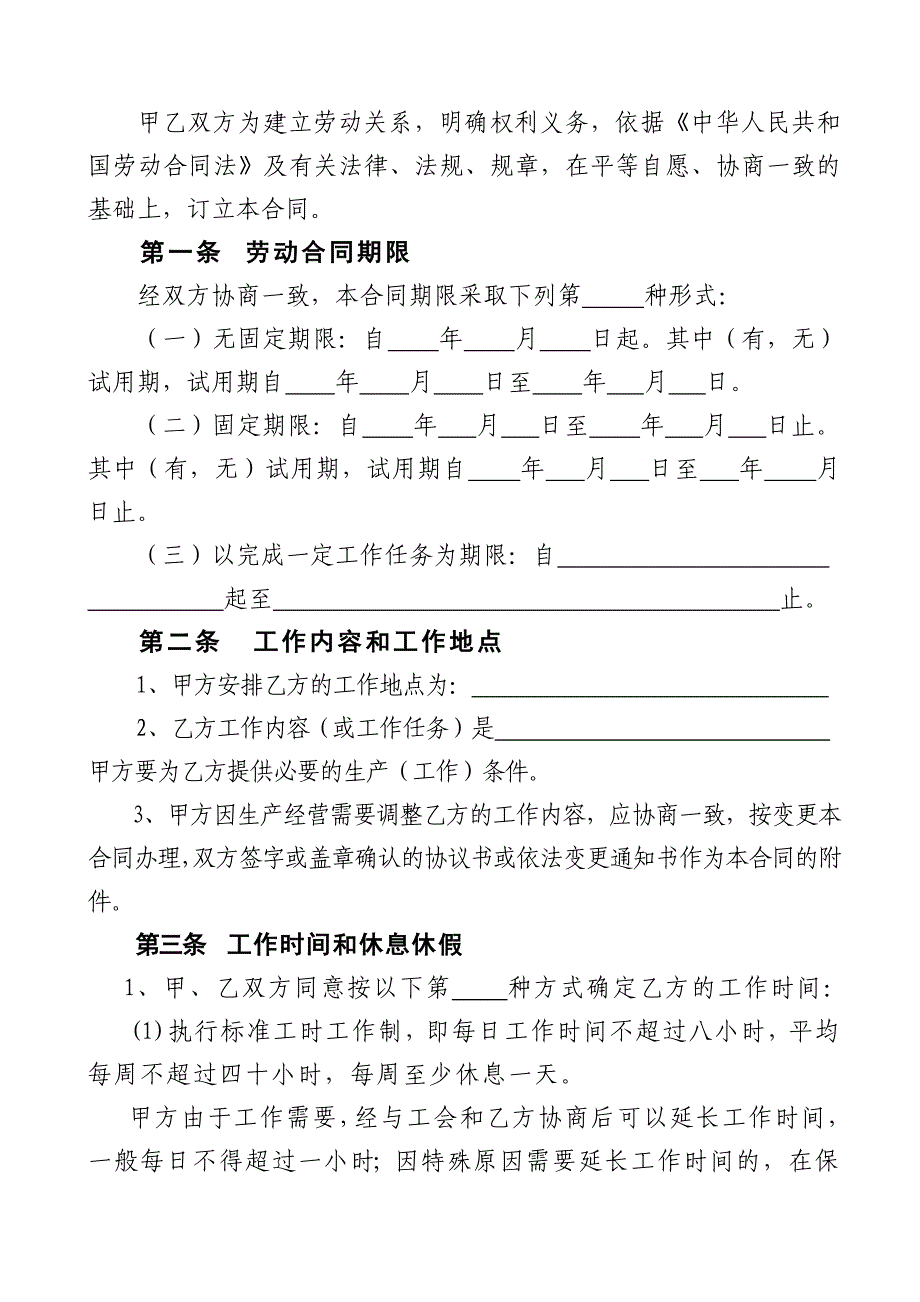 甲乙双方为建立劳动关系，明确权利义务，依据《中华人民共和
国劳动合同法》及有关法律、法规、规章，在平等自愿、协商一致的
基础上，订立本合同。
第一条 劳动合同期限
经双方协商一致，本合同期限采取下列第_____种形式：
（一）无固定期限：自____年____月____日起。其中（有，无）
试用期，试用期自____年____月____日至____年___月___日。
（二）固定期限：自____年___月___日至____年___月___日止。
其中（有，无）试用期，试用期自____年___月___日至___年____月
日止。
（三）以完成一定工作任务为期限：自______________________
___________起至________________________________________止。
第二条 工作内容和工作地点
1、甲方安排乙方的工作地点为：_____________________________
2、乙方工作内容（或工作任务）是___________________________
甲方要为乙方提供必要的生产（工作）条件。
3、甲方因生产经营需要调整乙方的工作内容，应协商一致，按变更本
合同办理，双方签字或盖章确认的协议书或依法变更通知书作为本合同的附
件。
第三条 工作时间和休息休假
1、甲、乙双方同意按以下第____种方式确定乙方的工作时间：
(1)执行标准工时工作制，即每日工作时间不超过八小时，平均
每周不超过四十小时，每周至少休息一天。
甲方由于工作需要，经与工会和乙方协商后可以延长工作时间，
一般每日不得超过一小时；因特殊原因需要延长工作时间的，在保